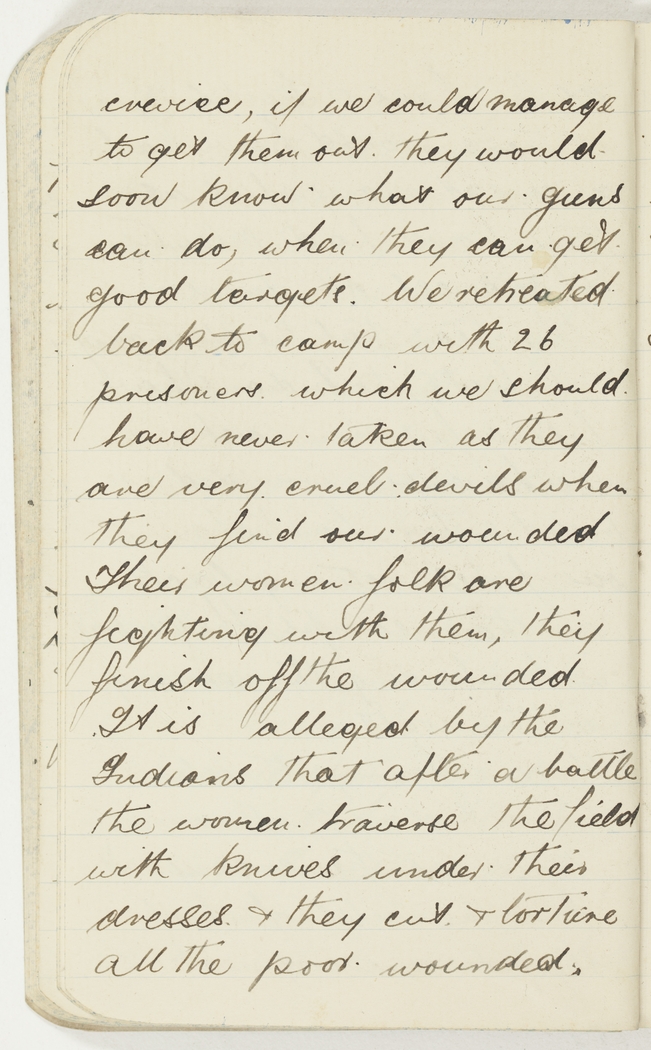 crevice, if we could manage
to get them out. they would
soon know what our guns
can do, when they can get
good targets. We retreated
back to camp with 26
prisoners. which we should
have never taken as they
are very cruel devils when
they find our wounded
Their women folk are
fighting with them, they
finish off the wounded
It is alleged by the
Indians that after a battle
the women traverse the field
with knives under their
dresses. & they cut & torture
all the poor wounded.